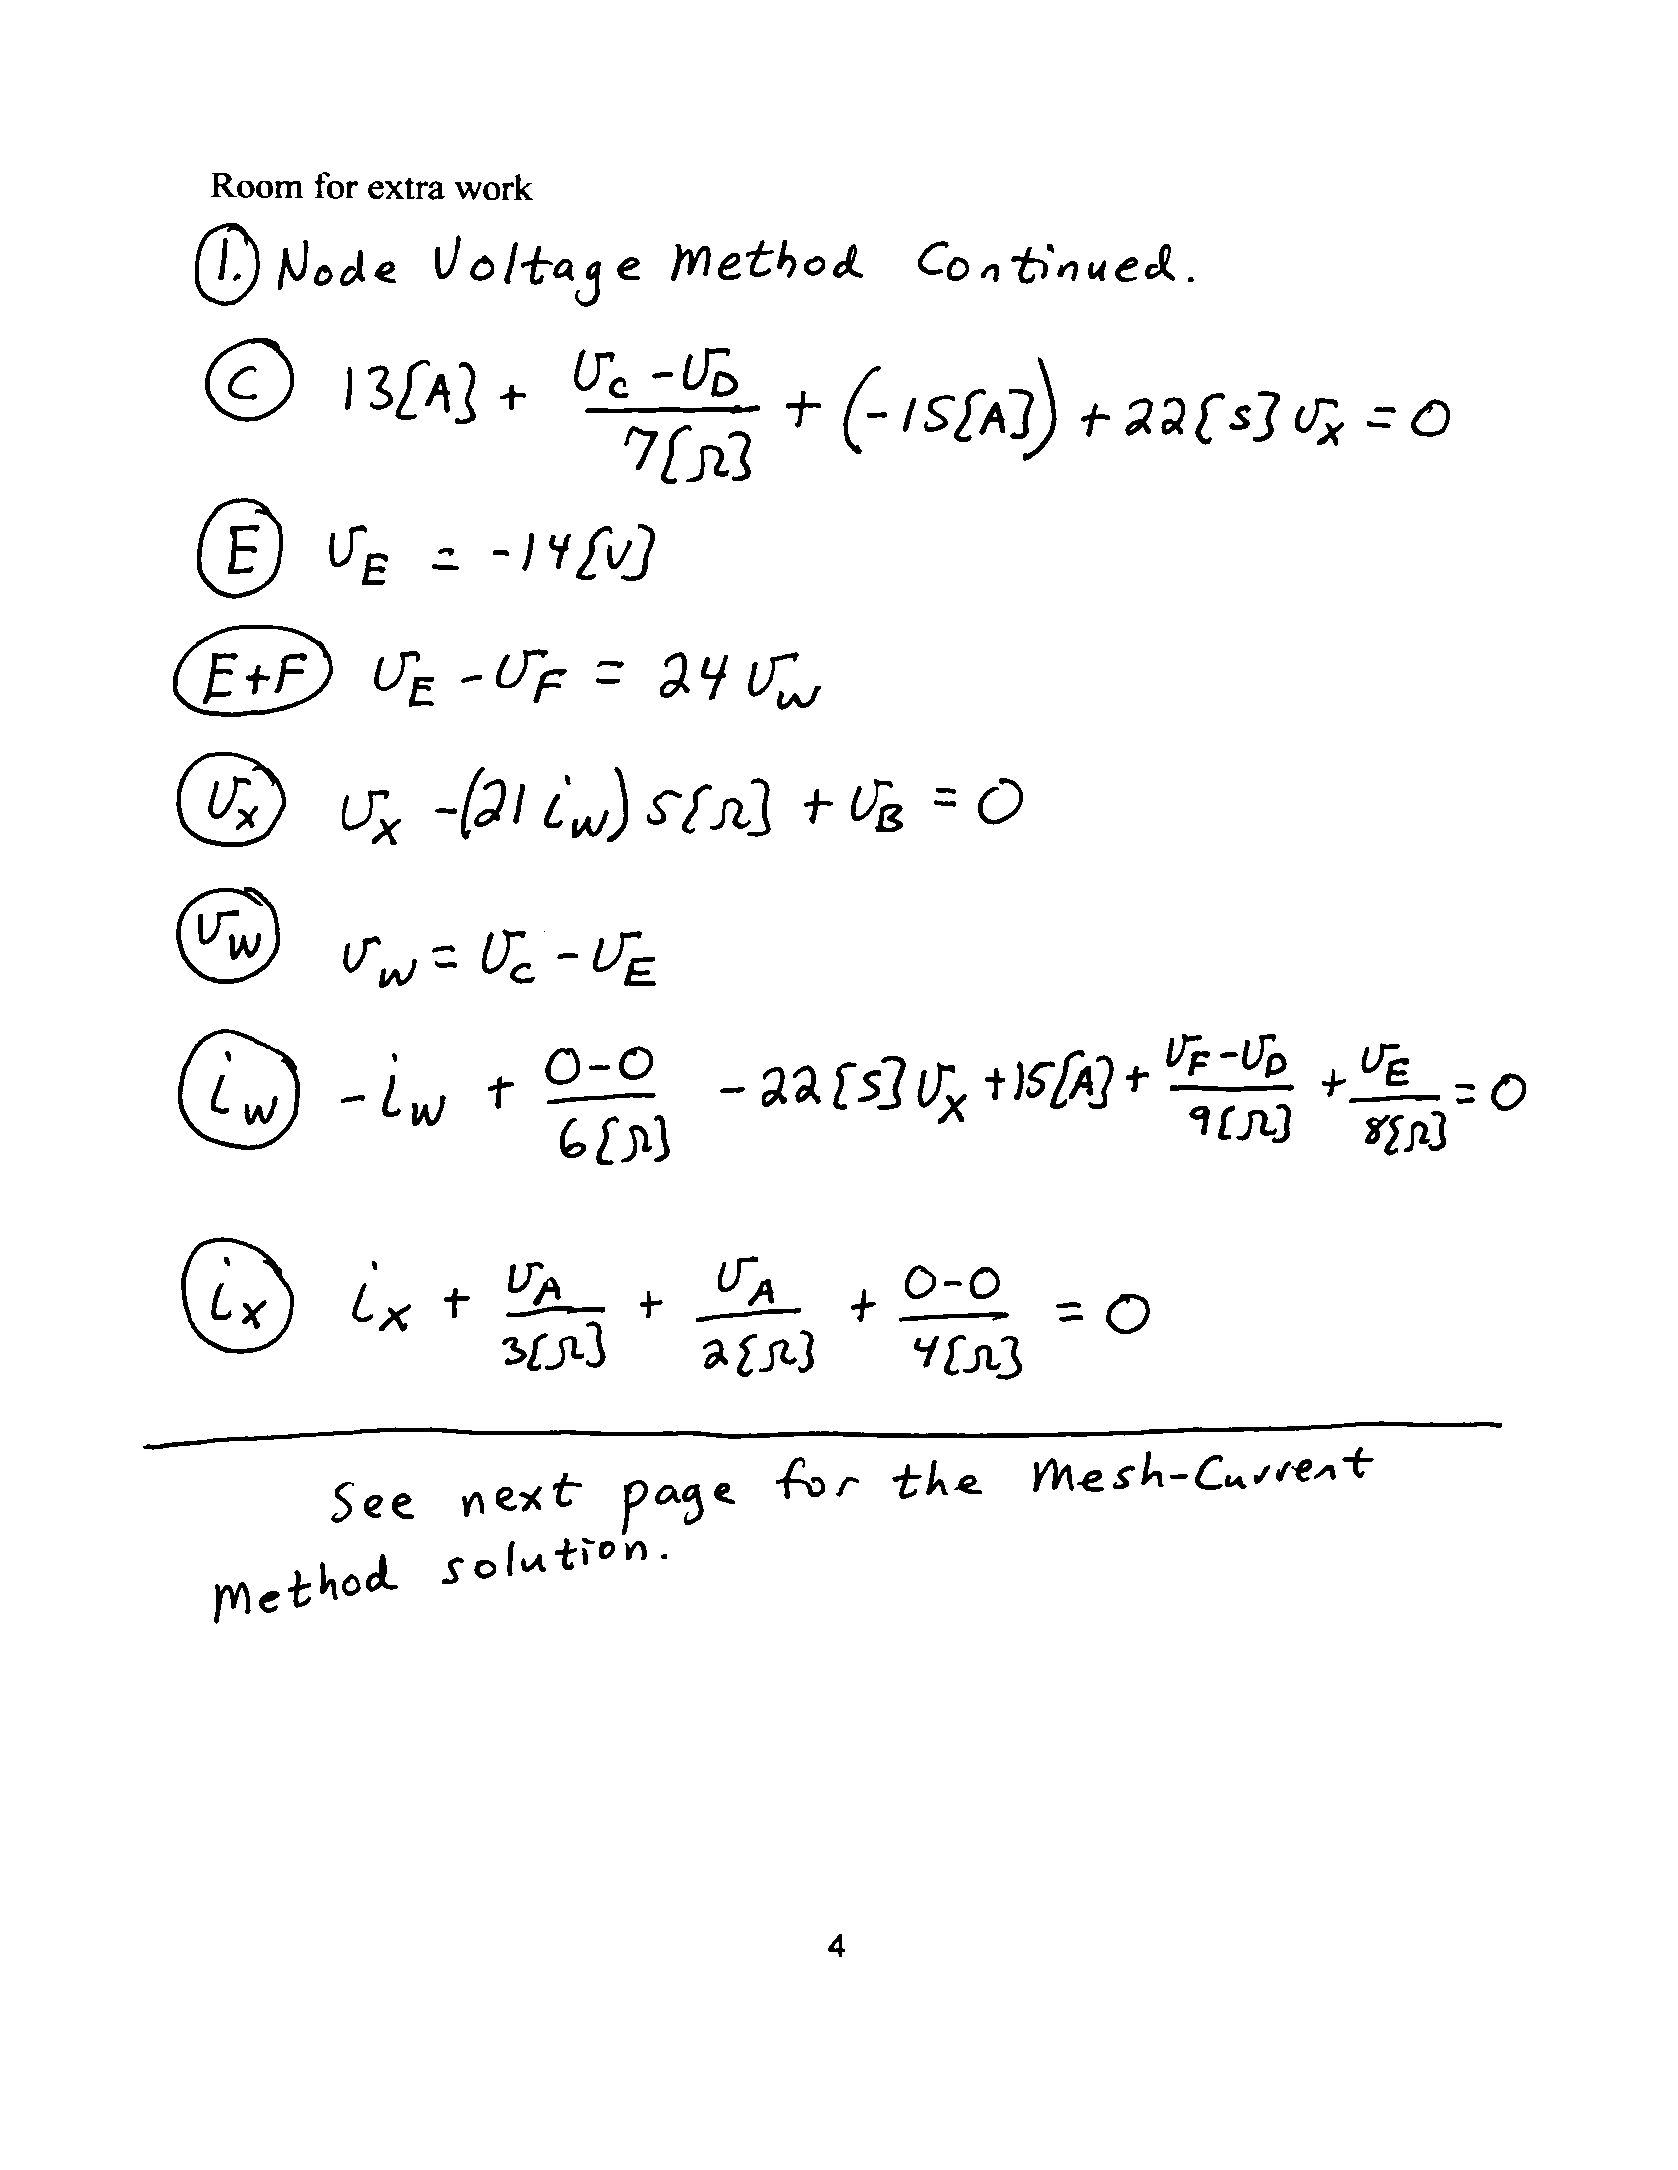 Room for extra work
1. Node Voltage Method Continued.
C 13[A] + (v_C - v_D)/7[Ω] + (-15[A]) + 22[S] v_X = 0
E v_E = -14[V]
E+F v_E - v_F = 24 v_W
v_X v_X - (21 i_W) 5[Ω] + v_B = 0
v_W v_W = v_C - v_E
i_W -i_W + (0-0)/6[Ω] - 22[S] v_X + 15[A] + (v_F - v_D)/9[Ω] + v_E/8[Ω] = 0
i_X i_X + v_A/3[Ω] + v_A/2[Ω] + (0-0)/4[Ω] = 0
See next page for the Mesh-Current
Method solution.
4